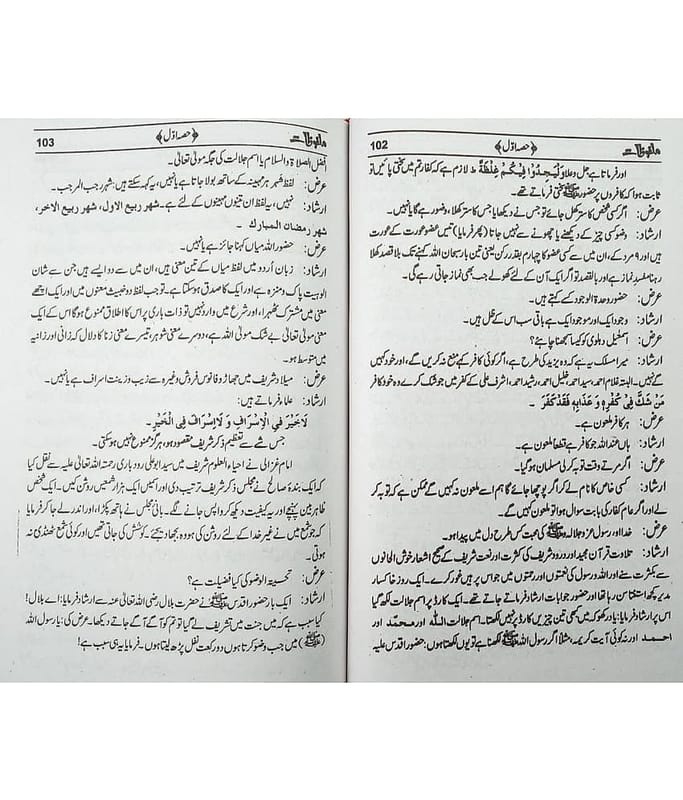 ملفوظات ﴿حصہ اوّل﴾ 102
اور فرماتا ہے جل وعلا وَلْيَجِدُوْا فِيْكُمْ غِلْظَةً ط لازم ہے کہ کفار تم میں سختی پائیں تو
ثابت ہوا کہ کافروں پر حضور ﷺ سختی فرماتے تھے۔
عرض: اگر کسی شخص کا ستر کھل جائے تو جس نے دیکھا یا جس کا ستر کھلا، وضو رہے گا یا نہیں۔
ارشاد: وضو کسی چیز کے دیکھنے یا چھونے سے نہیں جاتا (پھر فرمایا) تیس عضو عورت کے عورت
ہیں اور ۹ مرد کے، ان میں سے کسی عضو کا چہارم بقدر رکن یعنی تین بار سبحان اللہ کہنے تک بلا قصد کھلا
رہنا مفسدِ نماز ہے اور بالقصد تو اگر ایک آن کے لئے کھولے جب بھی نماز جاتی رہے گی۔
عرض: حضور وحدۃ الوجود کے کہتے ہیں۔
ارشاد: وجود ایک اور موجود ایک ہے باقی سب اس کے ظل ہیں۔
عرض: اسمٰعیل دہلوی کو کیسا سمجھنا چاہئے؟
ارشاد: میرا مسلک یہ ہے کہ وہ یزید کی طرح ہے، اگر کوئی کافر کہے منع نہ کریں گے، اور خود کہیں
گے نہیں۔ البتہ غلام احمد، سید احمد، خلیل احمد، رشید احمد، اشرف علی کے کفر میں جو شک کرے وہ خود کافر
مَنْ شَكَّ فِيْ كُفْرِهٖ وَ عَذَابِهٖ فَقَدْ كَفَرَ ۔
عرض: ہر کافر ملعون ہے۔
ارشاد: ہاں عند اللہ جو کافر ہے قطعاً ملعون ہے۔
عرض: اگر مرتے وقت توبہ کر لی مسلمان ہو گیا۔
ارشاد: کسی خاص کا نام لے کر اگر پوچھا جائے گا ہم اسے ملعون نہ کہیں گے ممکن ہے کہ توبہ کر
لے اور اگر عام کفار کی بابت سوال ہوا تو ملعون کہیں گے۔
عرض: خدا اور رسول عزوجلالہ و ﷺ کی محبت کس طرح دل میں پیدا ہو۔
ارشاد: تلاوت قرآن مجید اور درود شریف کی کثرت اور نعت شریف کے صحیح اشعار خوش الحانوں
سے بکثرت سنے اور اللہ و رسول کی نعمتوں اور رحمتوں میں جو اس پر ہیں غور کرے۔ ایک روز خاکسار
مدیر کچھ استفتا سن رہا تھا اور حضور جوابات ارشاد فرماتے جاتے تھے۔ ایک کارڈ پر اسم جلالت لکھ گیا
اس پر ارشاد فرمایا: یاد رکھو کہ میں کبھی تین چیزیں کارڈ پر نہیں لکھتا۔ اسم جلالت اللہ اور محمد اور
احمد اور نہ کوئی آیت کریمہ، مثلاً اگر رسول اللہ ﷺ لکھنا ہے تو یوں لکھتا ہوں: حضور اقدس علیہ
ملفوظات ﴿حصہ اوّل﴾ 103
افضل الصلاۃ و السلام یا اسم جلالت کی جگہ مولیٰ تعالیٰ۔
عرض: لفظ شہر ہر مہینہ کے ساتھ بولا جاتا ہے یا نہیں، یہ کہہ سکتے ہیں: شہر رجب المرجب۔
ارشاد: نہیں، یہ لفظ ان تینوں مہینوں کے لئے ہے۔ شهر ربيع الاول، شهر ربيع الاخر،
شهر رمضان المبارك ۔
عرض: حضور اللہ میاں کہنا جائز ہے یا نہیں۔
ارشاد: زبان اُردو میں لفظ میاں کے تین معنی ہیں، ان میں سے دو ایسے ہیں جن سے شان
الوہیت پاک و منزہ ہے اور ایک کا صدق ہو سکتا ہے۔ تو جب لفظ دو خبیث معنوں میں اور ایک اچھے
معنی میں مشترک ٹھہرا، اور شرع میں وارد نہیں تو ذات باری پر اس کا اطلاق ممنوع ہو گا اس کے ایک
معنی مولیٰ تعالیٰ بے شک مولیٰ اللہ ہے، دوسرے معنی شوہر، تیسرے معنی زنا کا دلال کہ زانی اور زانیہ
میں متوسط ہو۔
عرض: میلاد شریف میں جھاڑ و فانوس فروش وغیرہ سے زیب و زینت اسراف ہے یا نہیں۔
ارشاد: علماء فرماتے ہیں:
لَا خَيْرَ فِي الْاِسْرَافِ وَ لَا اِسْرَافَ فِي الْخَيْرِ۔
جس شے سے تعظیم ذکر شریف مقصود ہو، ہرگز ممنوع نہیں ہو سکتی۔
امام غزالی نے احیاء العلوم شریف میں سید ابو علی رودباری رحمۃ اللہ تعالیٰ علیہ سے نقل کیا
کہ ایک بندۂ صالح نے مجلس ذکر شریف ترتیب دی اور اسمیں ایک ہزار شمعیں روشن کیں۔ ایک شخص
ظاہر بین پہنچے اور یہ کیفیت دیکھ کر واپس جانے لگے۔ بانیٔ مجلس نے ہاتھ پکڑا، اور اندر لے جا کر فرمایا
کہ جو شمع میں نے غیر خدا کے لئے روشن کی ہو وہ بجھا دیجئے۔ کوشش کی جاتی تھیں اور کوئی شمع ٹھنڈی نہ
ہوئی۔
عرض: تحیۃ الوضو کی کیا فضیلت ہے؟
ارشاد: ایک بار حضور اقدس ﷺ نے حضرت بلال رضی اللہ تعالیٰ عنہ سے ارشاد فرمایا: اے بلال!
کیا سبب ہے کہ میں جنت میں تشریف لے گیا تو تم کو آگے آگے جاتے دیکھا۔ عرض کی: یا رسول اللہ
(ﷺ) میں جب وضو کرتا ہوں دو رکعت نفل پڑھ لیتا ہوں۔ فرمایا یہی سبب ہے!